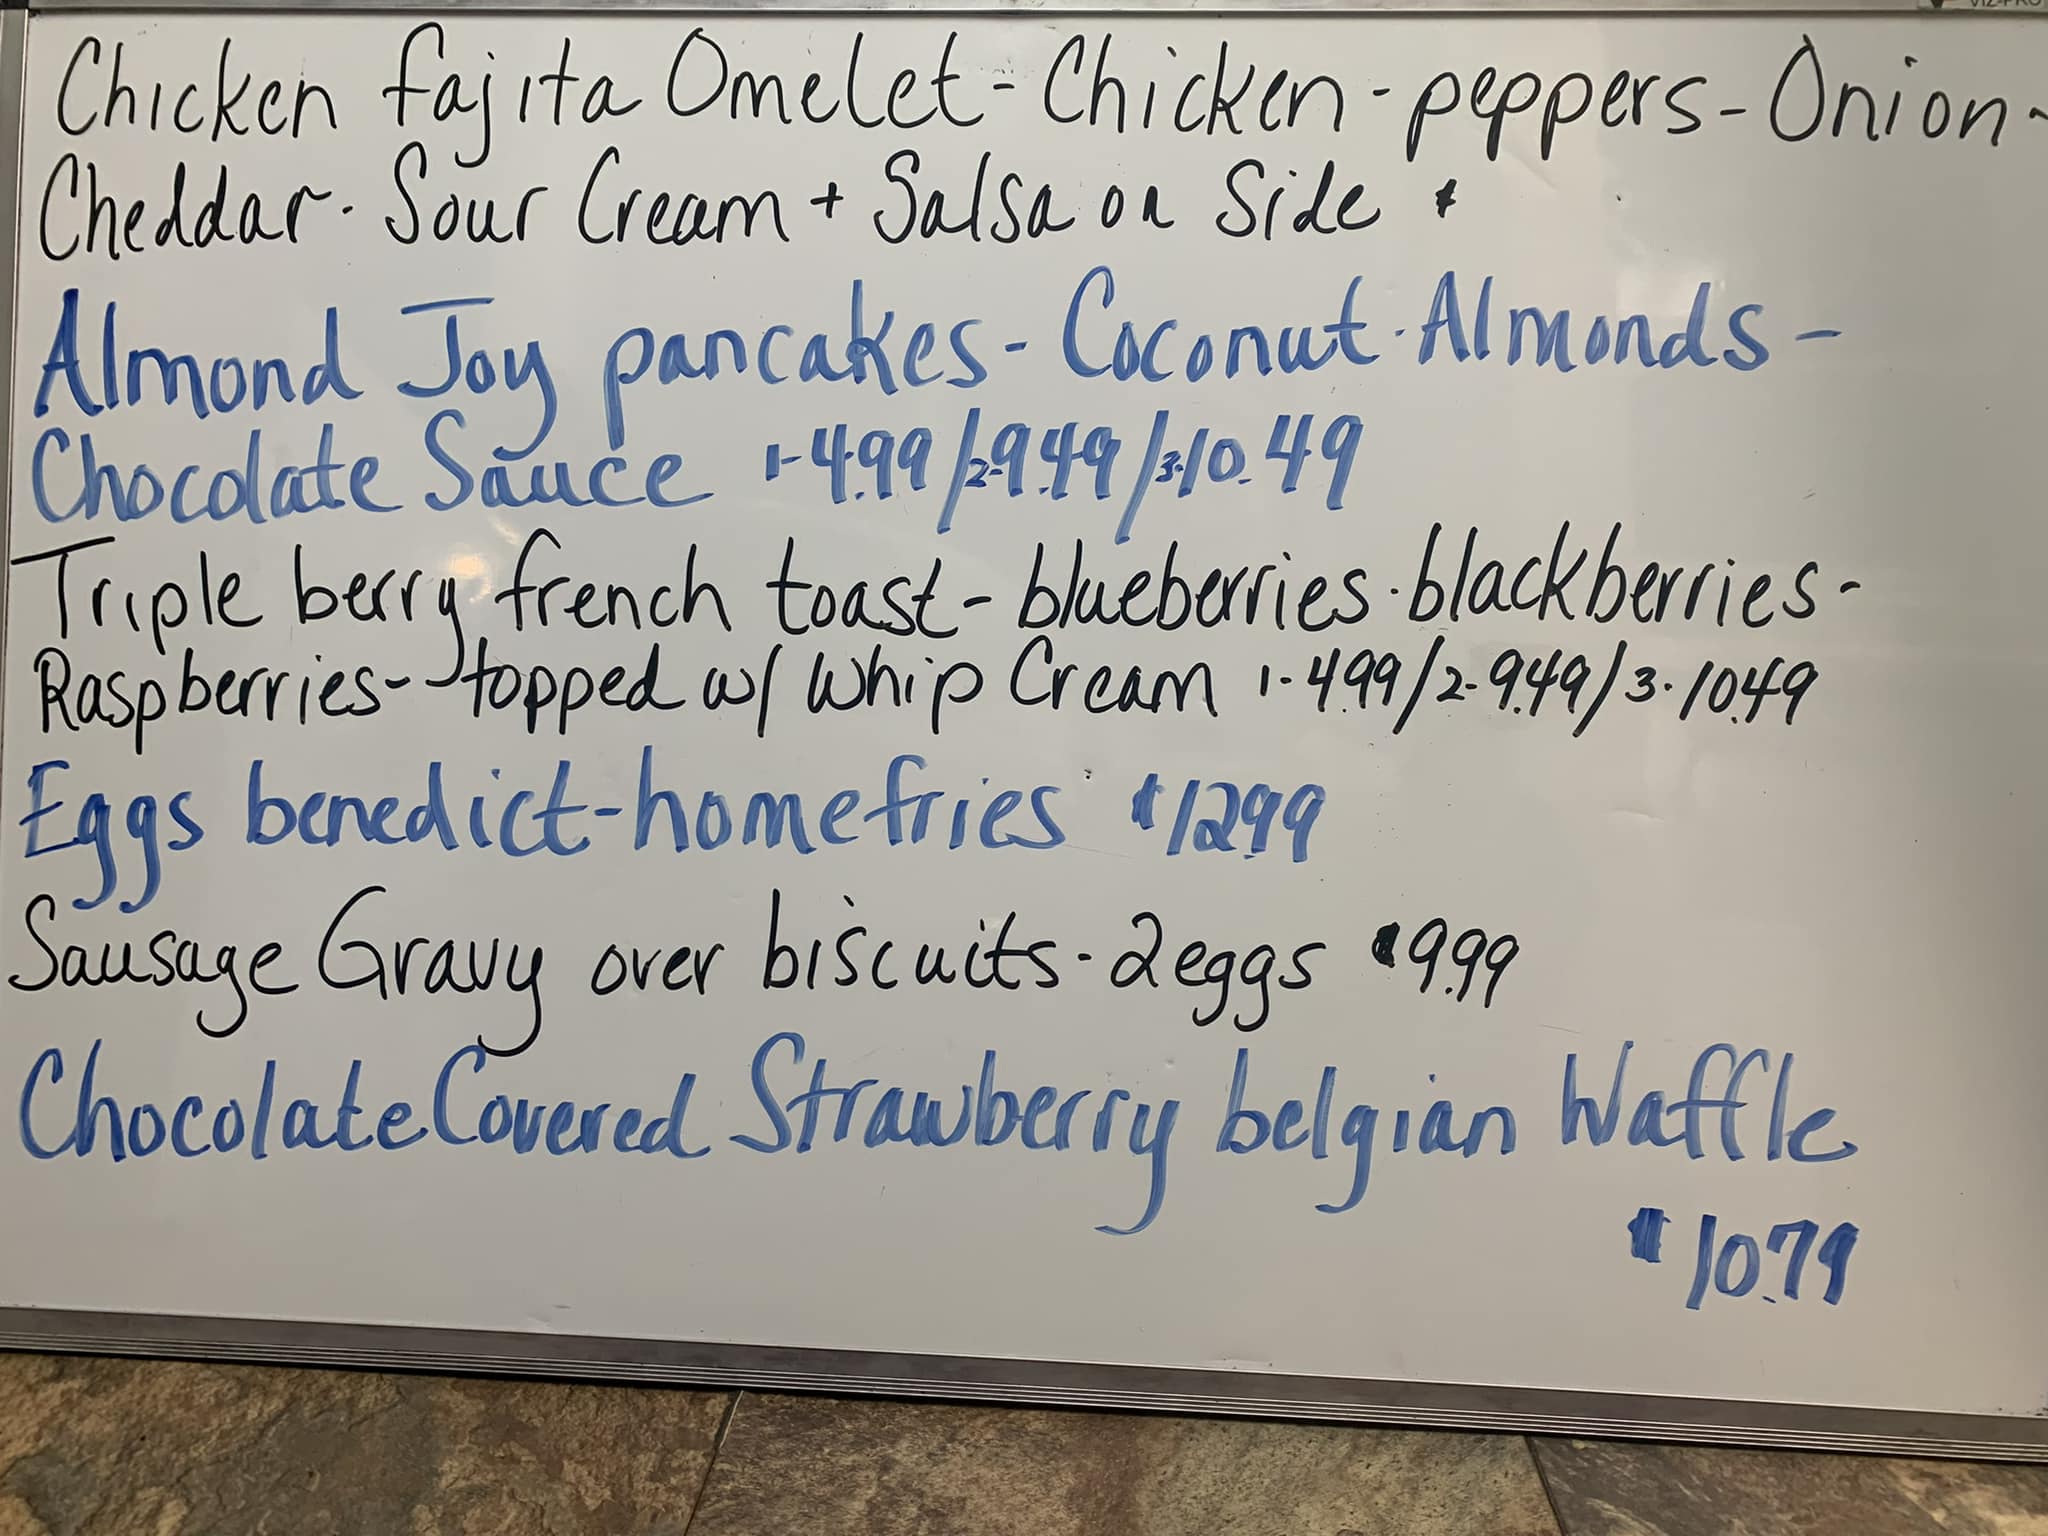 Chicken fajita Omelet - Chicken - peppers - Onion -
Cheddar - Sour Cream + Salsa on Side
Almond Joy pancakes - Coconut - Almonds -
Chocolate Sauce 1-4.99/2-9.49/3-10.49
Triple berry french toast - blueberries - blackberries -
Raspberries - topped w/ Whip Cream 1-4.99/2-9.49/3-10.49
Eggs benedict - homefries $12.99
Sausage Gravy over biscuits - 2 eggs $9.99
Chocolate Covered Strawberry belgian Waffle
$10.79